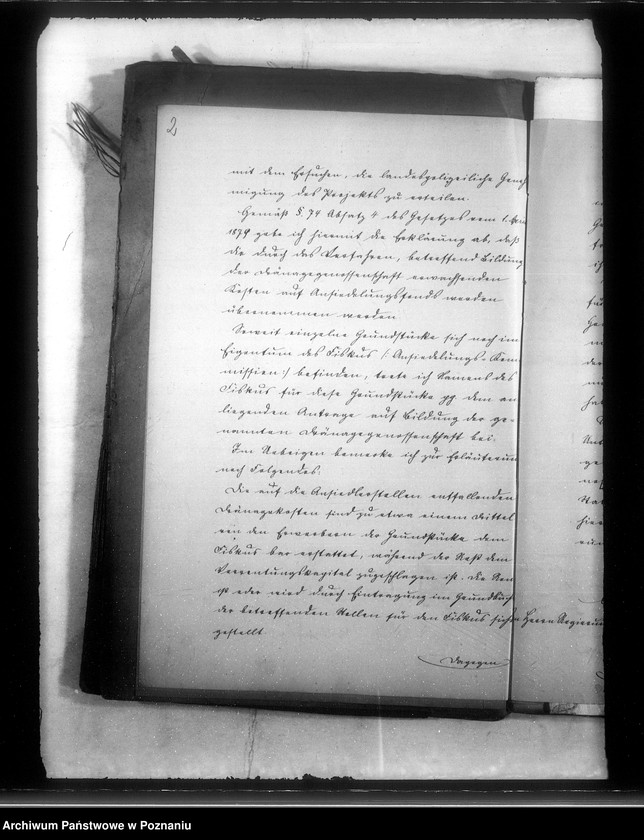 2
mit dem Ersuchen, die landespolizeiliche Geneh
migung des Projekts zu erteilen.
Gemäß §. 74 Absatz 4 des Gesetzes vom 1. April
1879 gebe ich hiermit die Erklärung ab, daß
die durch das Verfahren, betreffend Bildung
der Dränagegenossenschaft erwachsenden
Kosten auf Ansiedelungsfonds werden
übernommen werden
Soweit einzelne Grundstücke sich noch im
Eigentum des Fiskus /: Ansiedelungs-Kom
mission :/ befinden, trete ich Namens des
Fiskus für diese Grundstücke pp dem an
liegenden Antrage auf Bildung der ge-
nannten Dränagegenossenschaft bei.
Im Uebrigen bemerke ich zur Erläuterung
noch Folgendes:
Die auf die Ansiedlerstellen entfallenden
Dränagekosten sind zu etwa einem Drittel
von den Erwerbern der Grundstücke dem
Fiskus bar erstattet, während der Rest dem
Verrentungskapital zugeschlagen ist. Die
ist oder wird durch Eintragung im Grundbuch
der betreffenden Stellen für den Fiskus sicher
gestellt.
Dagegen
Herrn Regierun
Archiwum Państwowe w Poznaniu